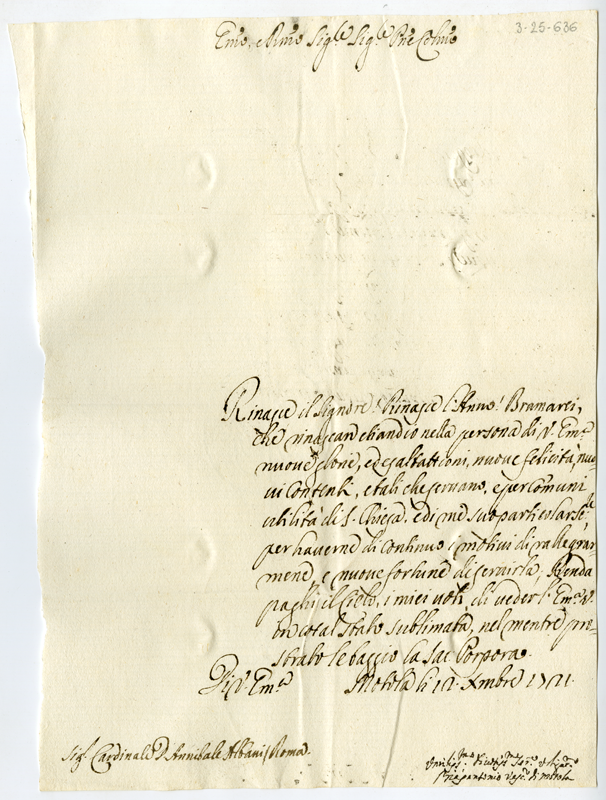 3-25-636
Emo. e Rmo Sigre Sigre Pne Colmo
Rinasce il Signore! Rinasce l'Anno! Bramarei,
che rinascan ehiandio nella persona di V. Emza
nuove glorie, ed esaltattioni, nuove felicità, nuo-
vi Contenti, e tali che servano, e per Comuni
utilità di S. Chiesa, ed i me suo particolar Sre,
per haverne di Continuo i motivi di rallegrar-
mene, e nuove fortune di servirla; Renda
paghi il Cielo, i miei voti, di veder l'Emza V.
in cotal Stato sublimata, nel mentre pro-
strato le baccio la Sac. Porpora.
Di V. Emza Motola li 12. Xmbre 1721.
Sigr Cardinale D Annibale Albani / Roma.
Vesc. di Motola